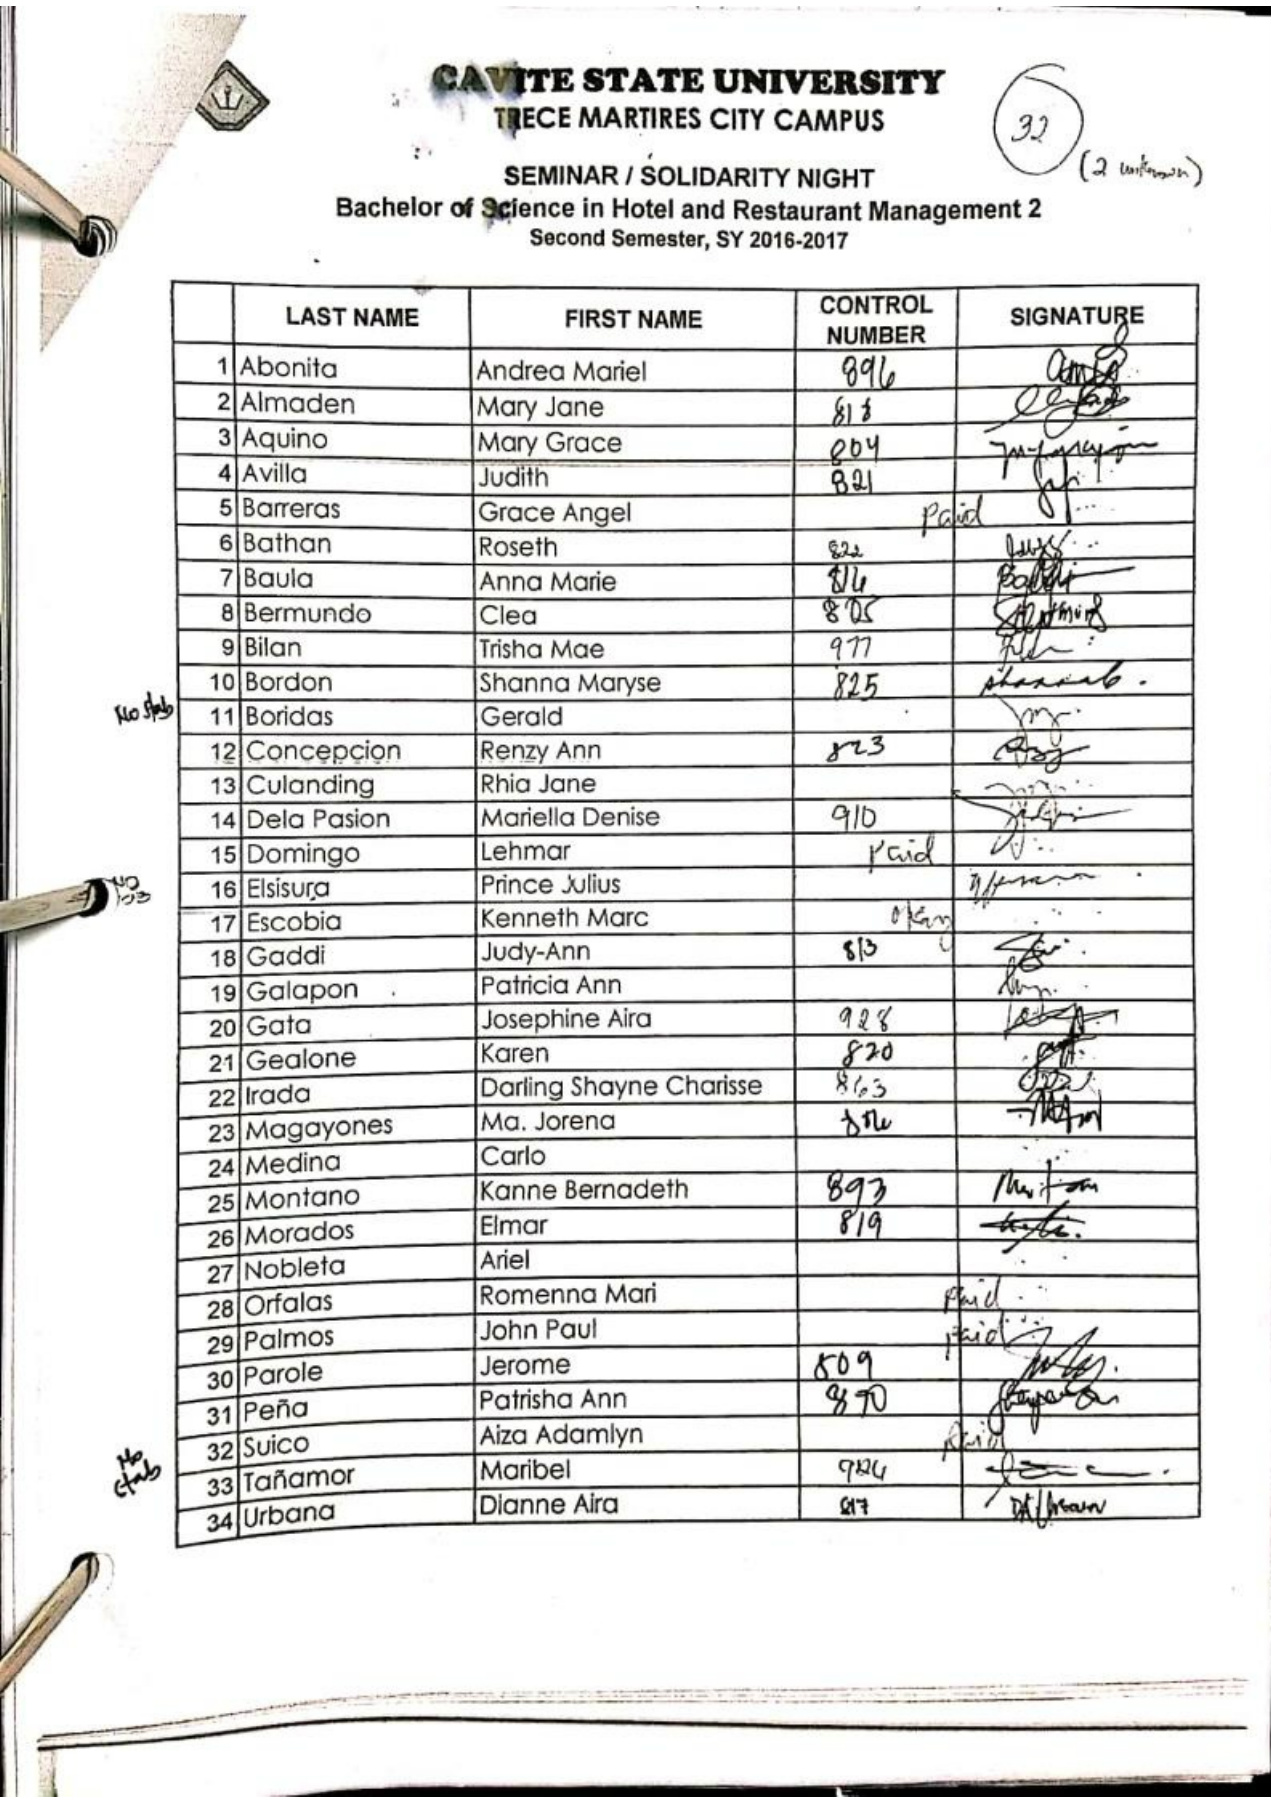 CAVITE STATE UNIVERSITY
TRECE MARTIRES CITY CAMPUS
32
(2 unknown)
SEMINAR / SOLIDARITY NIGHT
Bachelor of Science in Hotel and Restaurant Management 2
Second Semester, SY 2016-2017
LAST NAME FIRST NAME CONTROL NUMBER SIGNATURE
1 Abonita Andrea Mariel 896
2 Almaden Mary Jane 818
3 Aquino Mary Grace 804
4 Avilla Judith 821
5 Barreras Grace Angel Paid
6 Bathan Roseth 822
7 Baula Anna Marie
8 Bermundo Clea
9 Bilan Trisha Mae 977
10 Bordon Shanna Maryse 825
No stab
11 Boridas Gerald
12 Concepcion Renzy Ann 823
13 Culanding Rhia Jane
14 Dela Pasion Mariella Denise 910
15 Domingo Lehmar Paid
16 Elsisura Prince Julius
17 Escobia Kenneth Marc okay
18 Gaddi Judy-Ann 813
19 Galapon Patricia Ann
20 Gata Josephine Aira 928
21 Gealone Karen 820
22 Irada Darling Shayne Charisse 863
23 Magayones Ma. Jorena
24 Medina Carlo
25 Montano Kanne Bernadeth 893
26 Morados Elmar 819
27 Nobleta Ariel
28 Orfalas Romenna Mari Paid
29 Palmos John Paul Paid
30 Parole Jerome 809
31 Peña Patrisha Ann 870
32 Suico Aiza Adamlyn Paid
No stab
33 Tañamor Maribel
34 Urbana Dianne Aira 817